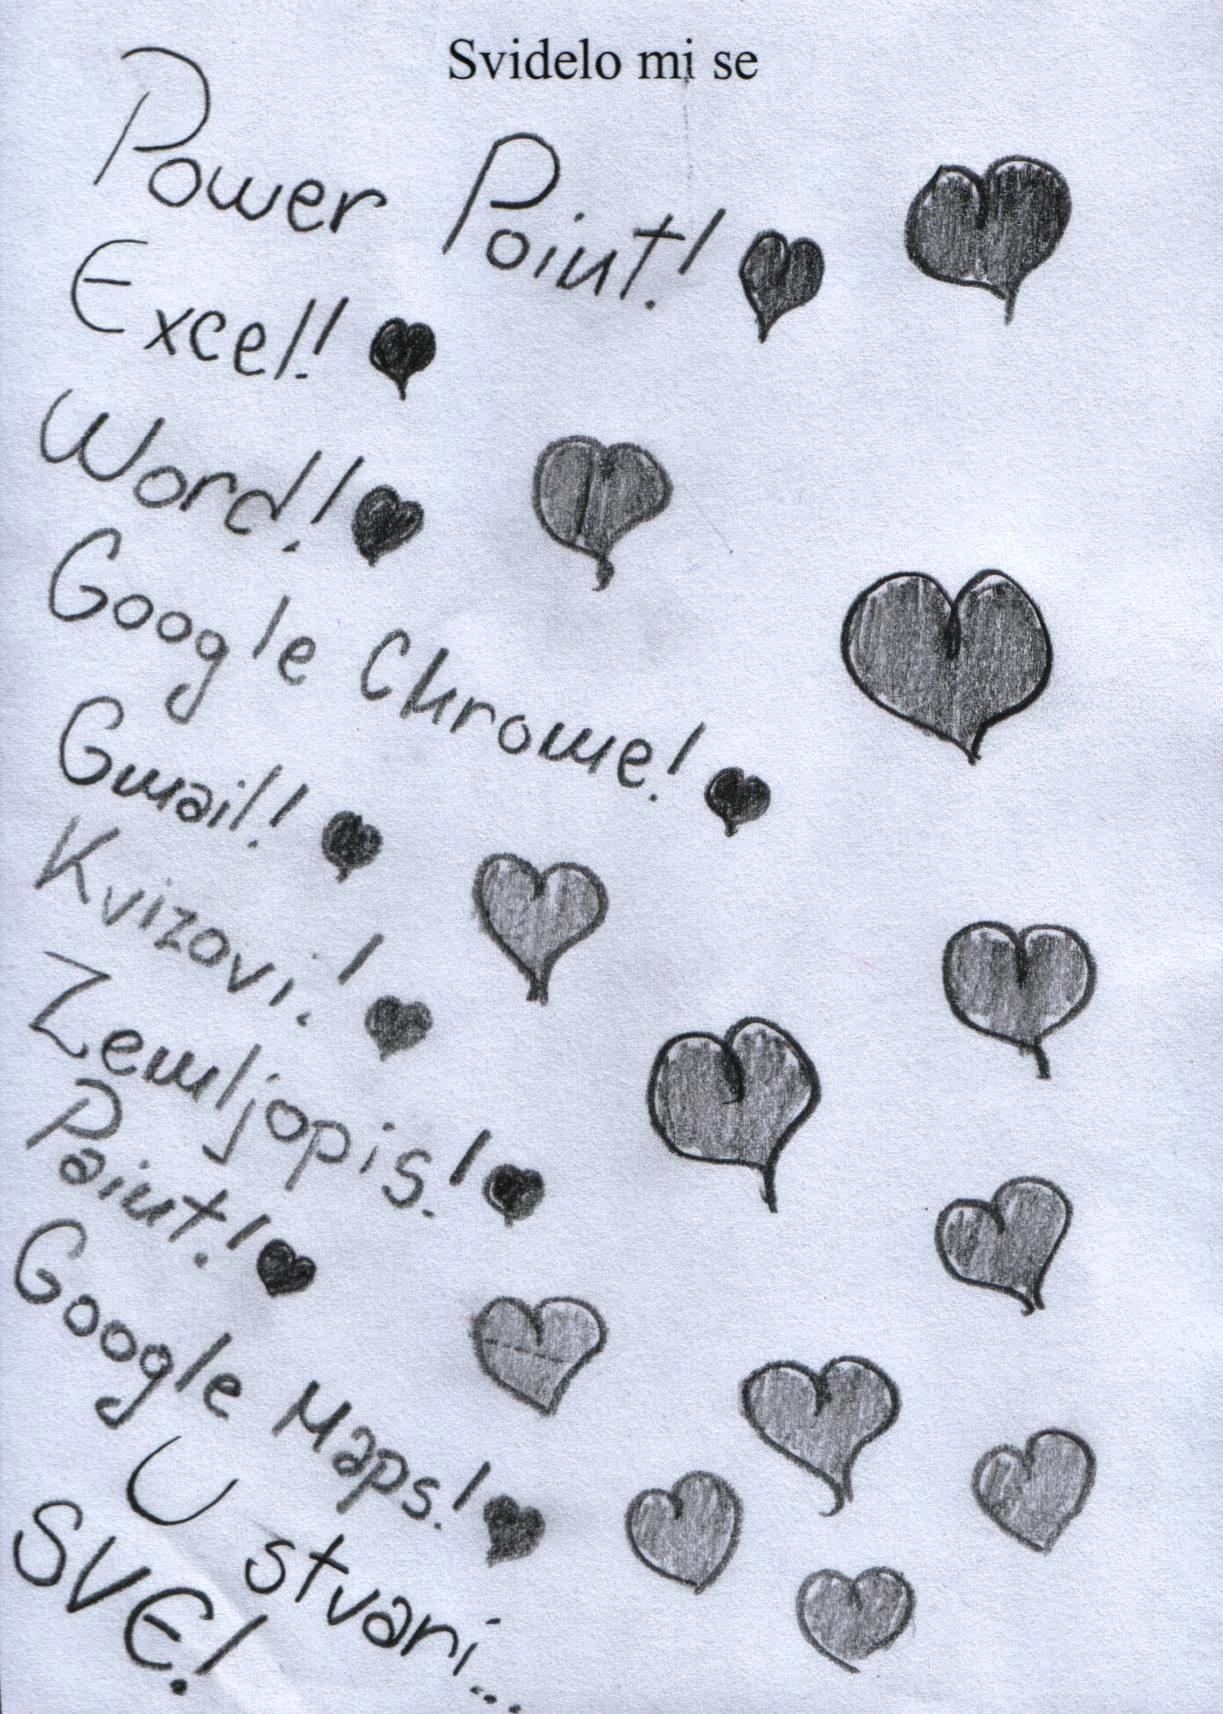 Svidelo mi se
Power Point!
Excel!
Word!
Google Chrome!
Gmail!
Kvizovi!
Zemljopis!
Paint!
Google Maps!
U stvari...
SVE!